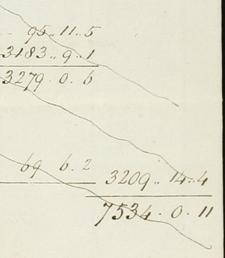 95 .. 11 .. 5
3183 .. 9 .. 1
3279 . 0 . 6
69 6 . 2
3209 .. 14 .. 4
7534 . 0 . 11